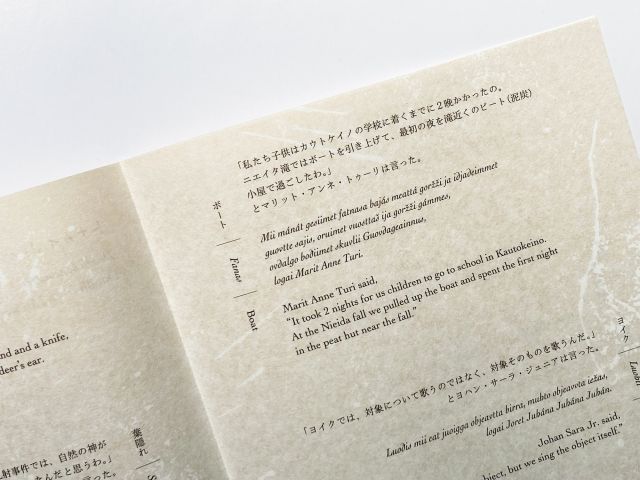 「私たち子供はカウトケイノの学校に着くまでに２晩かかったの。
ニエイタ滝ではボートを引き上げて、最初の夜を滝近くのピート（泥炭）
小屋で過ごしたわ。」
とマリット・アンネ・トゥーリは言った。
ボート
Mii mánát gesiimet fatnasa bajás meattá goržži ja idjadeimmet
guovtte sajis, oruimet vuosttaš ija goržži gámmes,
ovdalgo bođiimet skuvlii Guovdageainnus,
logai Marit Anne Turi.
Fanas
Marit Anne Turi said,
“It took 2 nights for us children to go to school in Kautokeino.
At the Nieida fall we pulled up the boat and spent the first night
in the peat hut near the fall.”
Boat
nd and a knife,
deer’s ear.
「ヨイクでは、対象について歌うのではなく、対象そのものを歌うんだ。」
とヨハン・サーラ・ジュニアは言った。
ヨイク
Luođis mii eat juoigga objeavtta birra, muhto objeavtta iežas,
logai Joret Jubána Jubána Jubán.
Johan Sara Jr. said,
bject, but we sing the object itself.”
射事件では、自然の神が
たんだと思うわ。」
言った。
葉隠れ